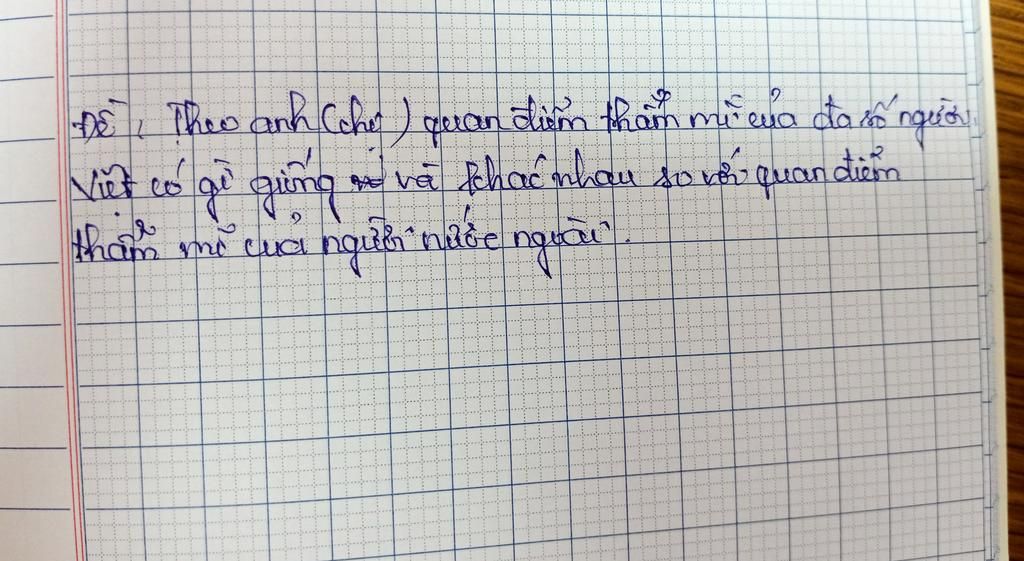 Đề: Theo anh (chị) quan điểm thẩm mĩ của đa số người
Việt có gì giống và khác nhau so với quan điểm
thẩm mĩ của người nước ngoài.